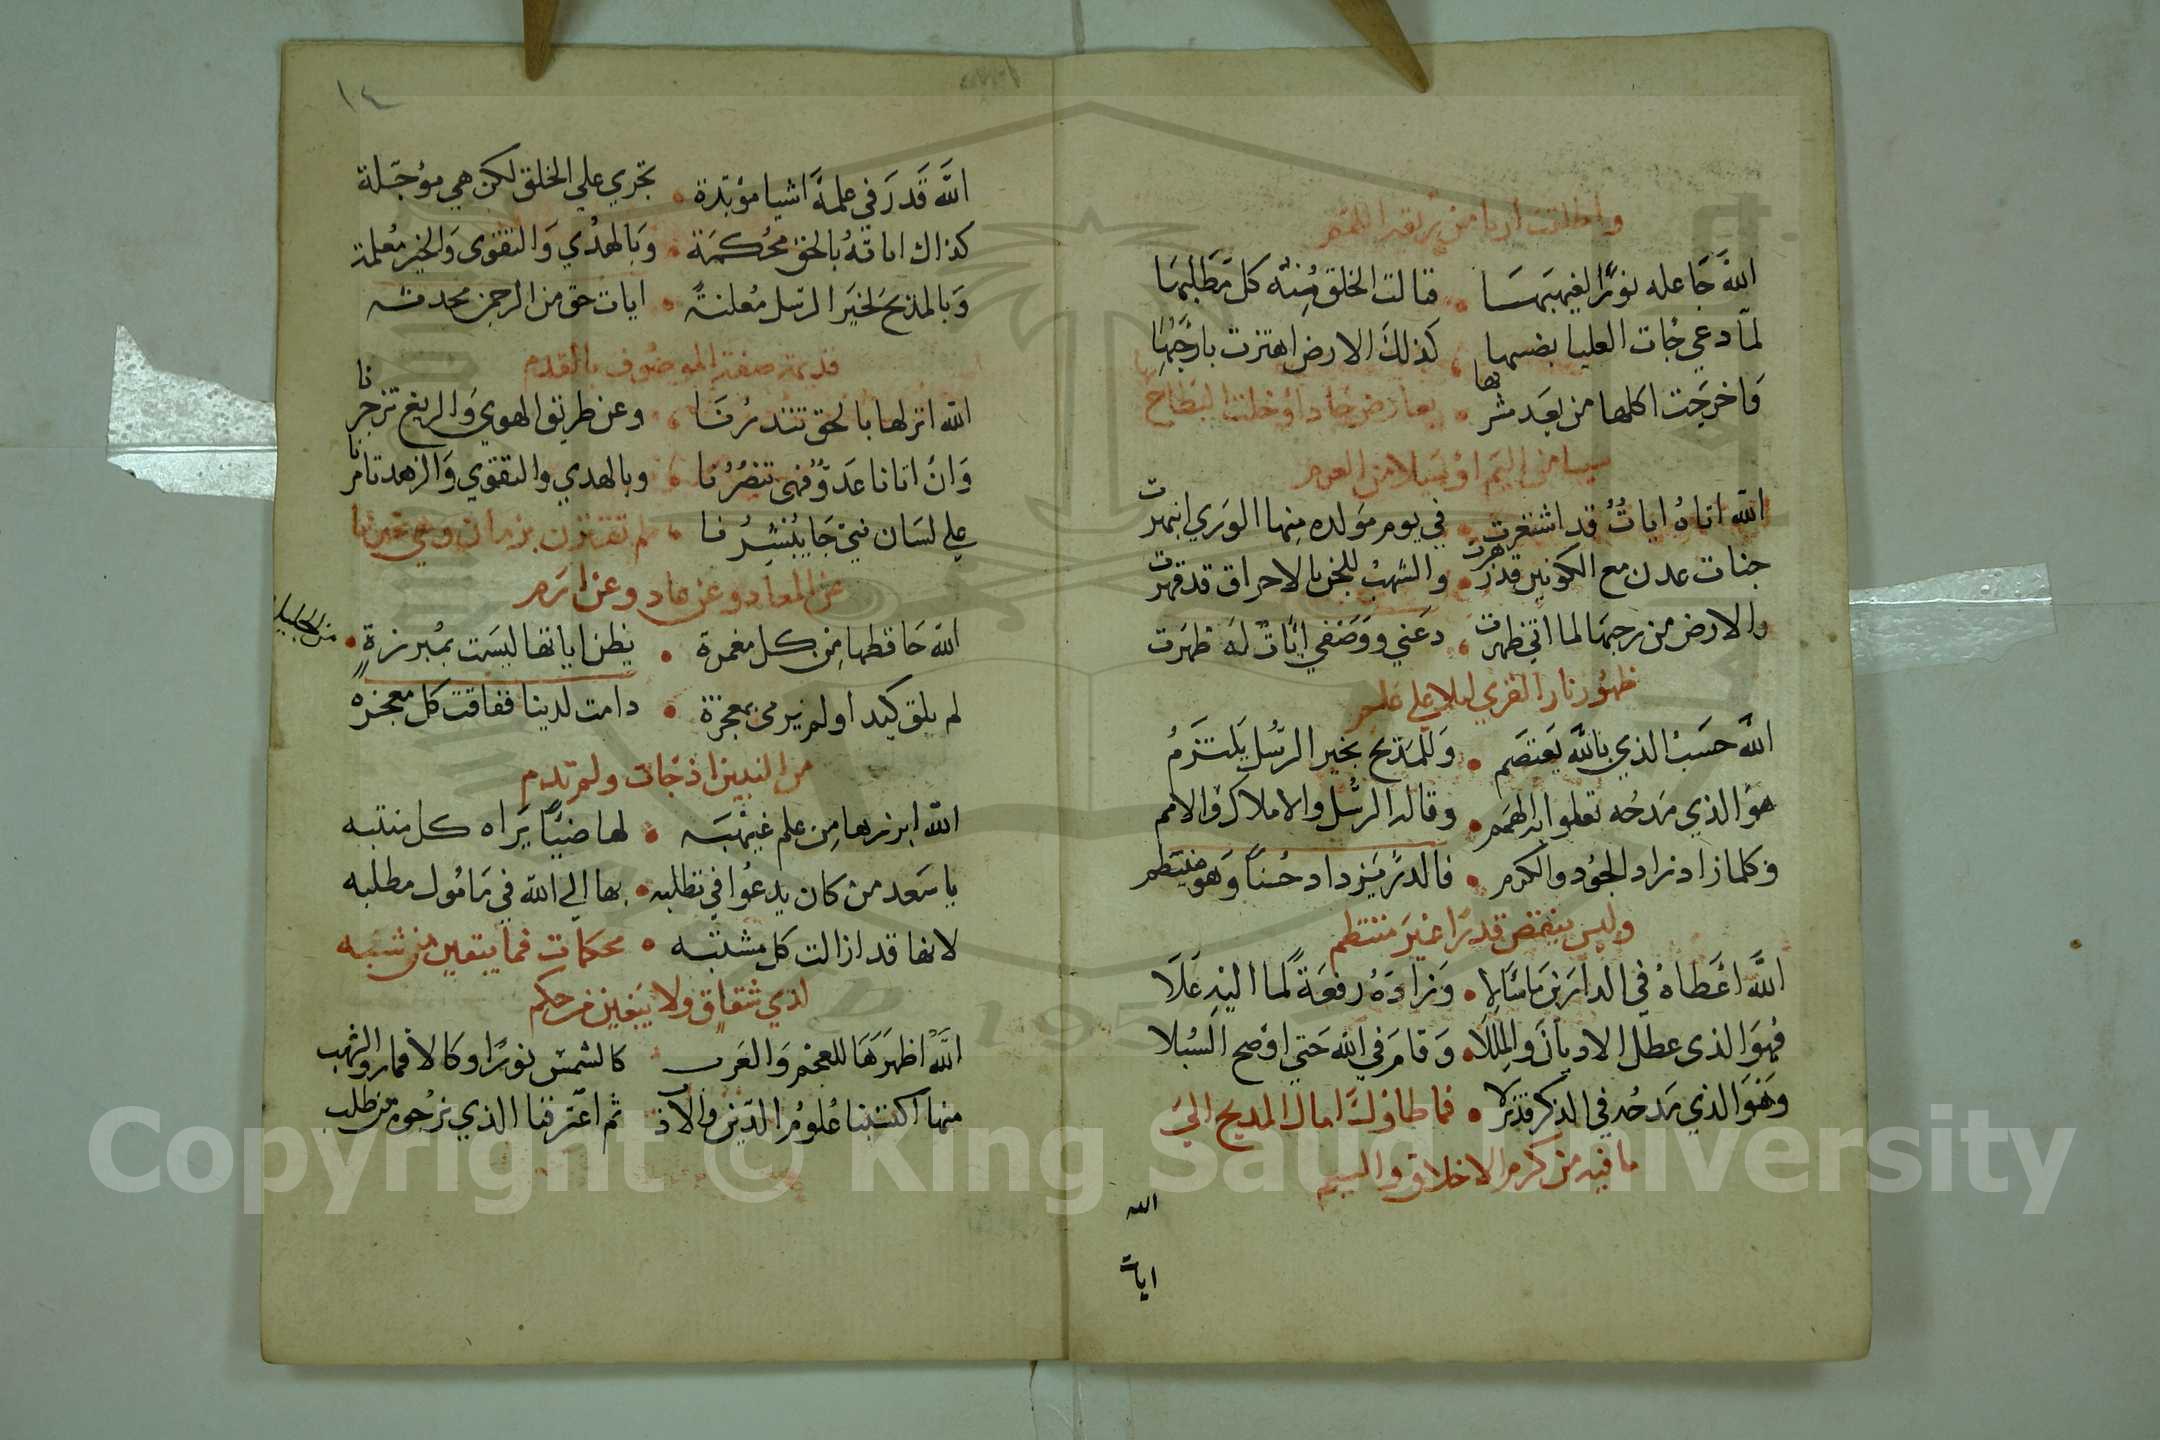 واطلقت اربا من ربقة اللمم
اللَّه جَاعله نورًا لغيهبهَا • قالت الخلق مِنهُ كل مَطَلبهَا
لمّا دعي جات العليا بضبها • كذلك الارض اهتزت بارجُبهَا
وَاخرجَت اكلها من بعد مشربها • بعارض جاد او خلت البطاح
سيبا من اليم او سَيلا من العرم
اللَّه اتاهُ اياتُ قد اشتهرت • في يوم مَولده مِنها الوَري انبهرت
جنات عدن مع الكونين قد زهرت • والشهبُ للجن بالاحراق قد قهرت
والارض من رحبهَا لما اتي ظهرت • دَعني ووَصَفي ايَات له ظهَرت
ظهُور نار القري ليلا علي علم
اللَّه حسَبُ الذي باللَّه يَعتصَم • وَللمَدَيح بخير الرسُل يَلتزمُ
هوَ الذي مَدحُه تعلوا به الهمَم • وقاله الرسُل والاملاك وَالامم
وكلما زاد زاد الجُود والكرم • فالدرّ يَزداد حُسنًا وَهوَ منتظم
وليس ينقص قدرًا غيرَ منتظم
اللَّه اعَطاهُ في الدارَين مَا سَالا • وَزادَهُ رفعَةً لما اليهِ عَلَا
فهوَ الذي عطل الاديان وَالمِلَلا • وَقامَ في اللَّه حَتي اوضح السُبلا
وَهوَ الذي مَدحُه في الذكر قد نزلا • فما تطاوُل امال المديح الي
ما فيه من كرم الاخلاق والشيم
الله
ايات
١٤
اللَّه قَدرَ في علمهَ اشيا مؤبّدة • تجري علي الخلق لكن هي مؤجّلة
كذاك اياتهُ بالحق محُكمَة • وَبالهدُي وَالتقوى وَالخير مُعلمة
وَبالمدَيح لخيَر الرسل مُعلنةً • ايات حق من الرحمن محدثة
قديمة صفة الموصُوف بالقدم
اللَّه انزلها بالحق تنذرُنَا • وعن طريق الهوي وَالزيغ تزجرنا
وَانْ اتانا عَدوٌّ فهي تنصُرُنا • وبالهدي والتقوي وَالزهد تامرنا
علي لسَان نبي جَا يُبَشِرُنا • لم تقترن بزمان وهي تخبرنا
عن المعاد وعن عاد وعن ارَم
اللَّه حَافظها مِن كل مغمزة • يظن اياتها ليسَت بمُبرزةٍ • من الجليل
لم يلق كيدا ولم يرمي بمعجزة • دامت لدينا ففاقت كل معجزةٍ
من النبيين اذ جَات ولم تدم
اللَّه ابرزها مِن علم غَيهَبَه • لها ضيًا يَراه كل منتبه
يا سَعد من كان يدعُوا في تطلبه • بها الي اللَّه في مَامُول مطلبه
لانها قد ازالت كل مشتبه • محكمات فما يبقين من شبه
لذي شقاقٍ ولا يَبغين من حكم
اللَّه اظهَرَهَا للعجم وَالعَرب • كالشمس نورًا وكالاقمار والشهب
منها اكتسَبنا عُلومُ الدّين والادب • ثم اعترفنا الذي نرجُوه من طلب